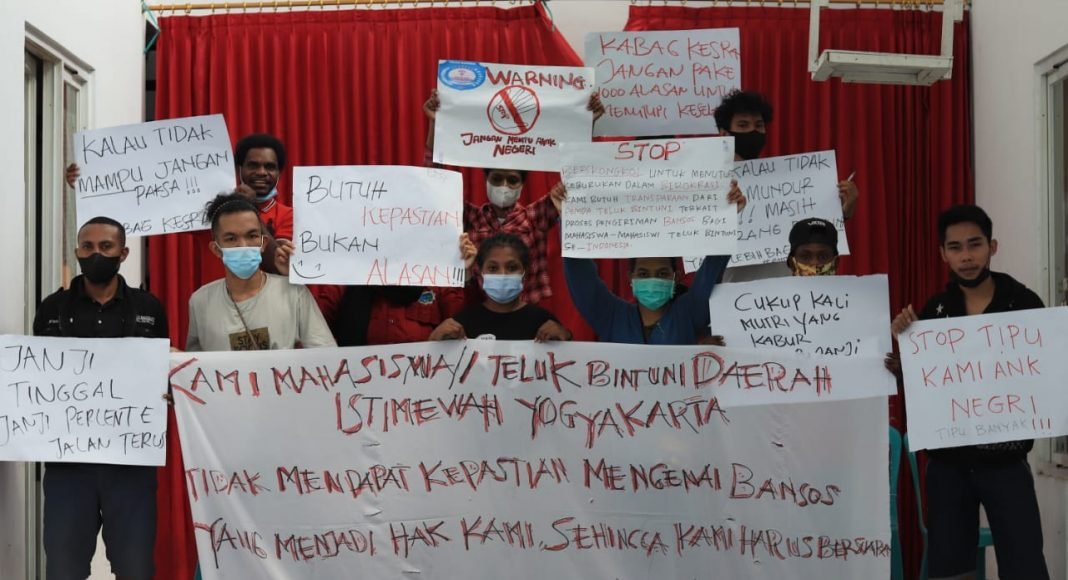 KALAU TIDAK
MAMPU JANGAN
PAKSA !!!
BAG KESR
WARNING.
JANGAN MENTU ANK
NEGRI
KABAG KESRA
JANGAN PAKE
1000 ALASAN UNTUK
MENUTUPI KESEL
BUTUH
KEPASTIAN
BUKAN
ALASAN!!!
STOP
BERSKONGKOL UNTUK MENUTUP
KEBURUKAN DALAM BIROKRASI
KAMI BUTUH TRANSPARAN DARI
PEMDA TELUK BINTUNI TERKAIT
PROSES PENGIRIMAN BANSOS BAGI
MAHASISWA-MAHASISWI TELUK BINTUNI
SE-INDONESIA.
KALAU TIDAK
MUNDUR
!! MASIH
LEBIH BA
JANJI
TINGGAL
JANJI PERCENTE
JALAN TERUS
CUKUP KALI
MUTRI YANG
KABUR
JANJI
STOP TIPU
KAMI ANK
NEGRI
TIPU BANYAK!!!
KAMI MAHASISWA/I TELUK BINTUNI DAERAH
ISTIMEWAH YOGYAKARTA
TIDAK MENDAPAT KEPASTIAN MENGENAI BANSOS
YANG MENJADI HAK KAMI. SEHINGGA KAMI HARUS BERSUARA